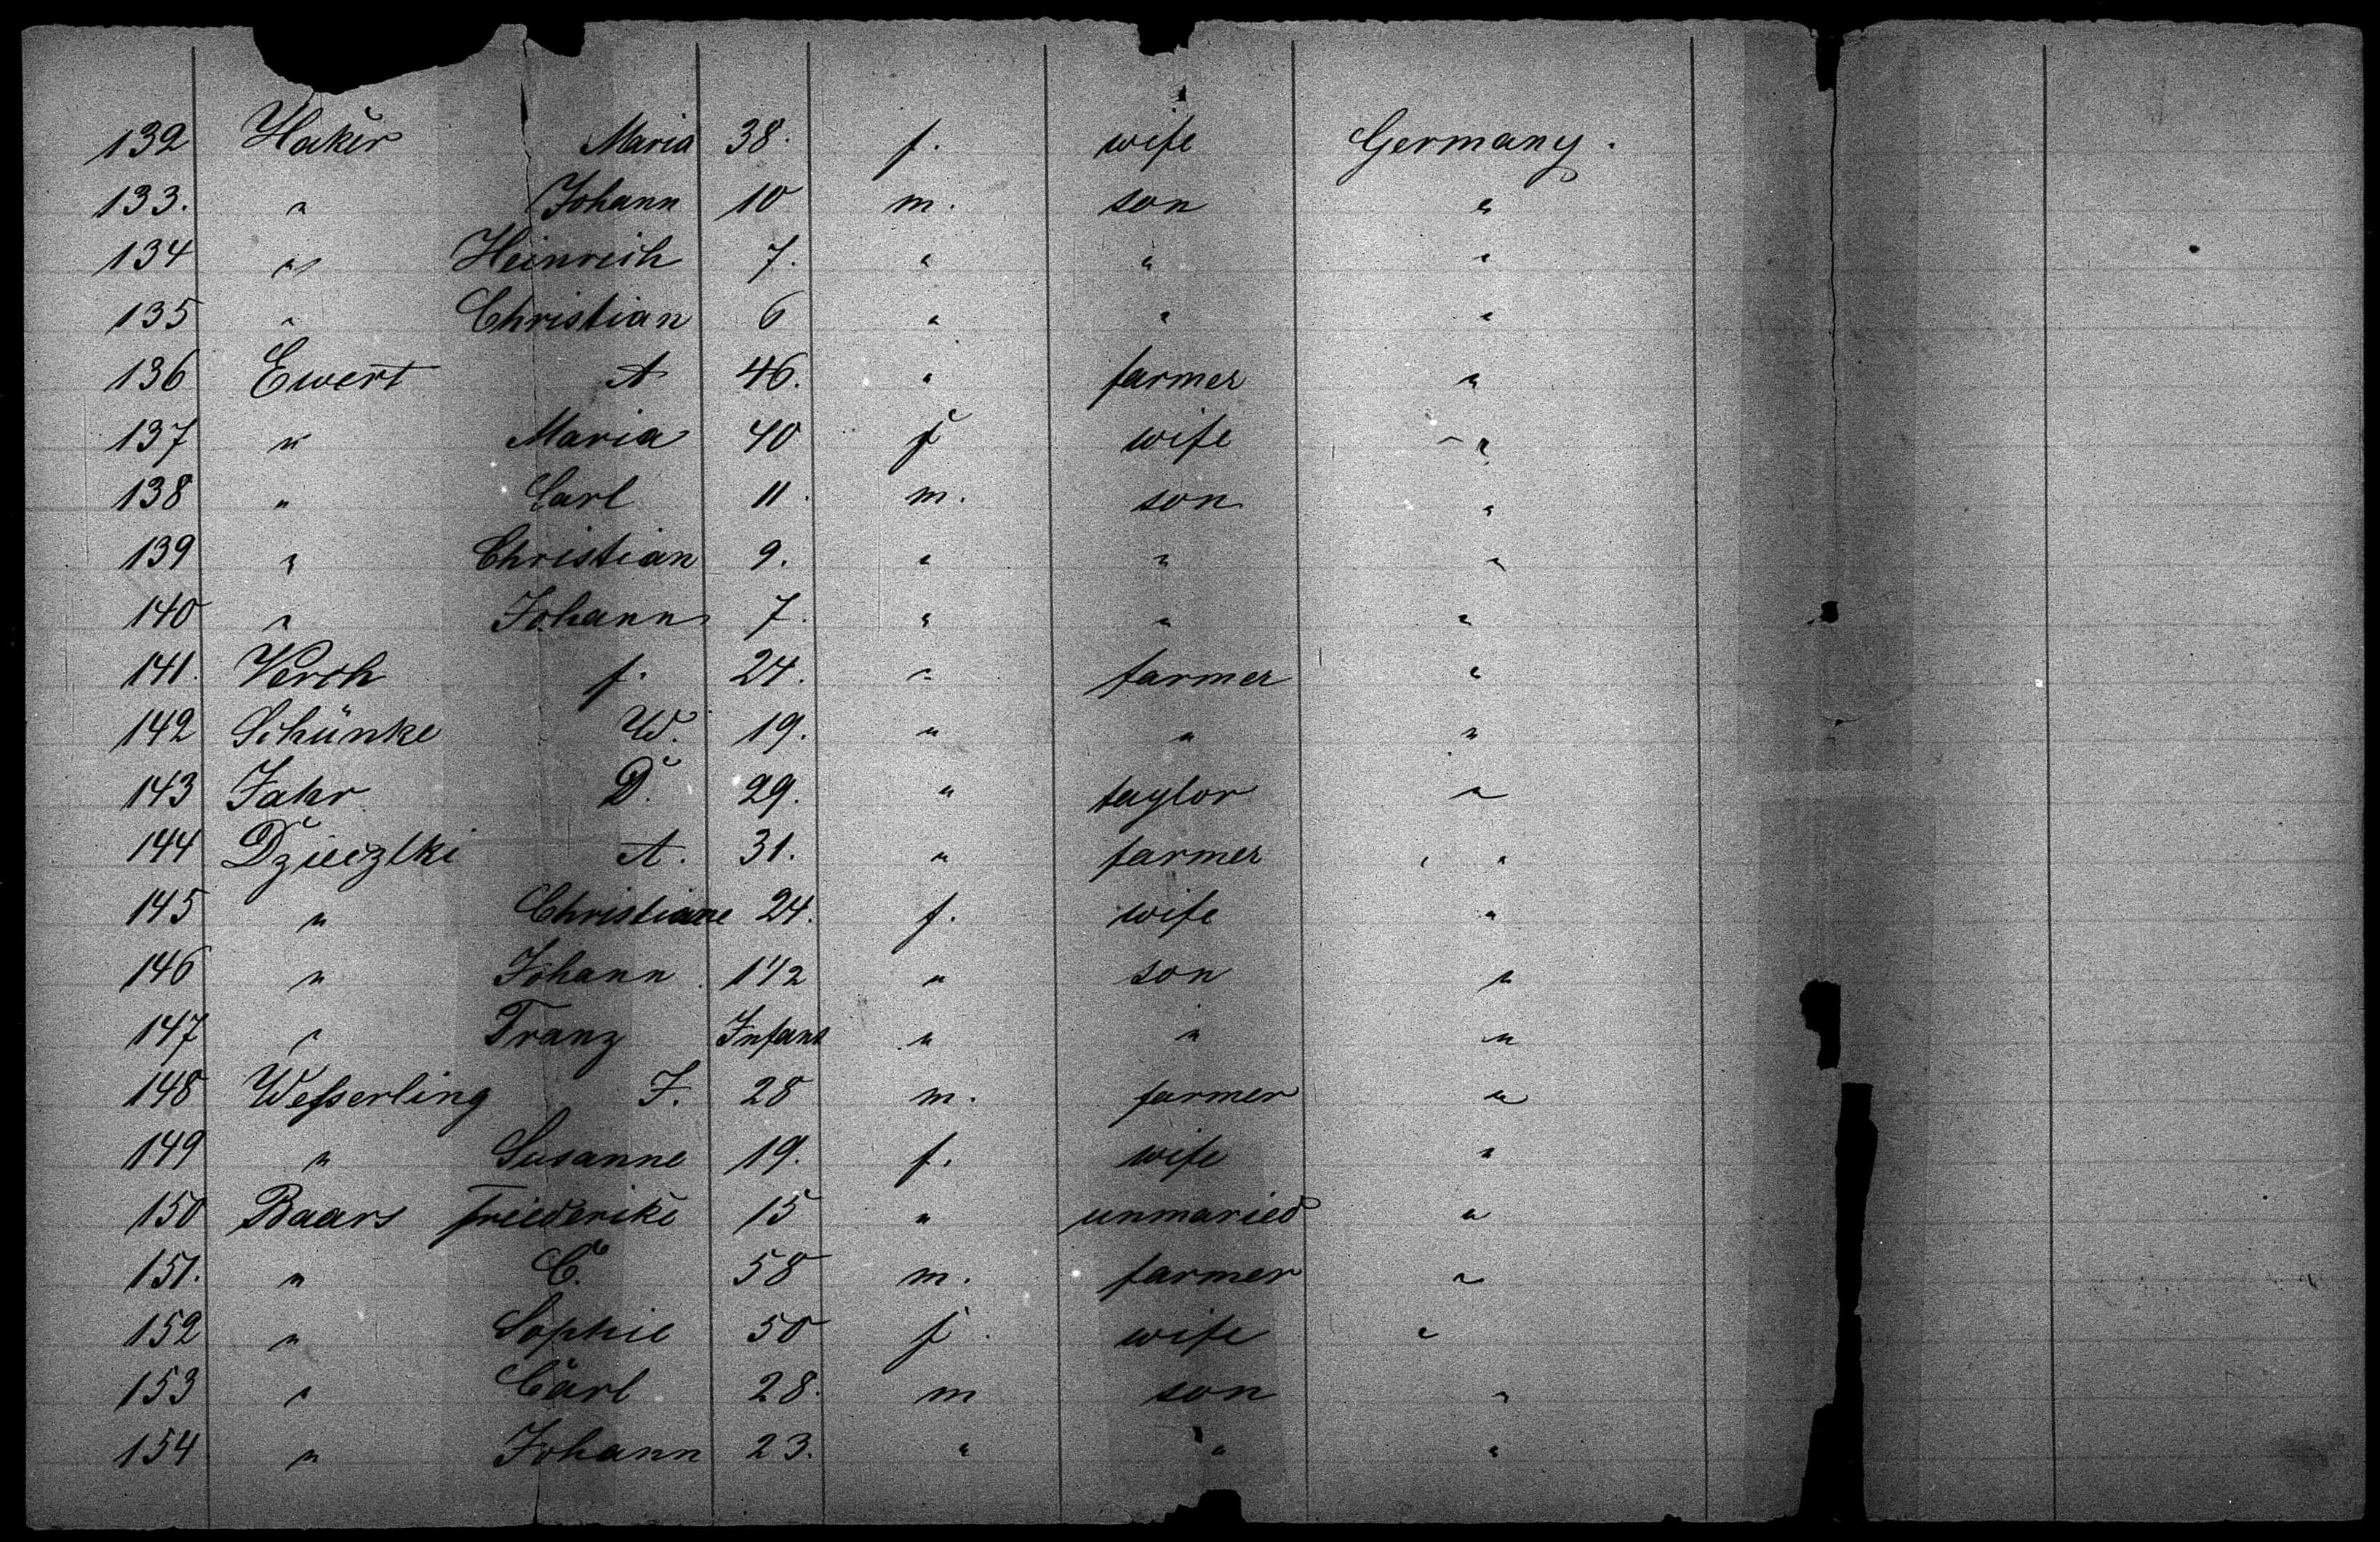 132 Haker Maria 38. f. wife Germany.
133. " Johann 10 m. son "
134 " Heinrich 7. " " "
135 " Christian 6 " " "
136 Ewert A 46. " farmer "
137 " Maria 40 f wife "
138 " Carl 11. m. son "
139 " Christian 9. " " "
140 " Johann 7. " " "
141. Veroh f. 24. " farmer "
142 Schünke W. 19. " " "
143 Jahr D. 29. " taylor "
144 A. 31. " farmer "
145 " Christiane 24. f. wife "
146 " Johann 1 1/2 " son "
147 " Franz Infant " " "
148 Wesserling F. 28 m. farmer "
149 " Susanne 19. f. wife "
150 Baars Friederike 15 " unmaried "
151. " C. 58 m. farmer "
152 " Sophie 50 f. wife "
153 " Carl 28. m son "
154 " Johann 23. " " "